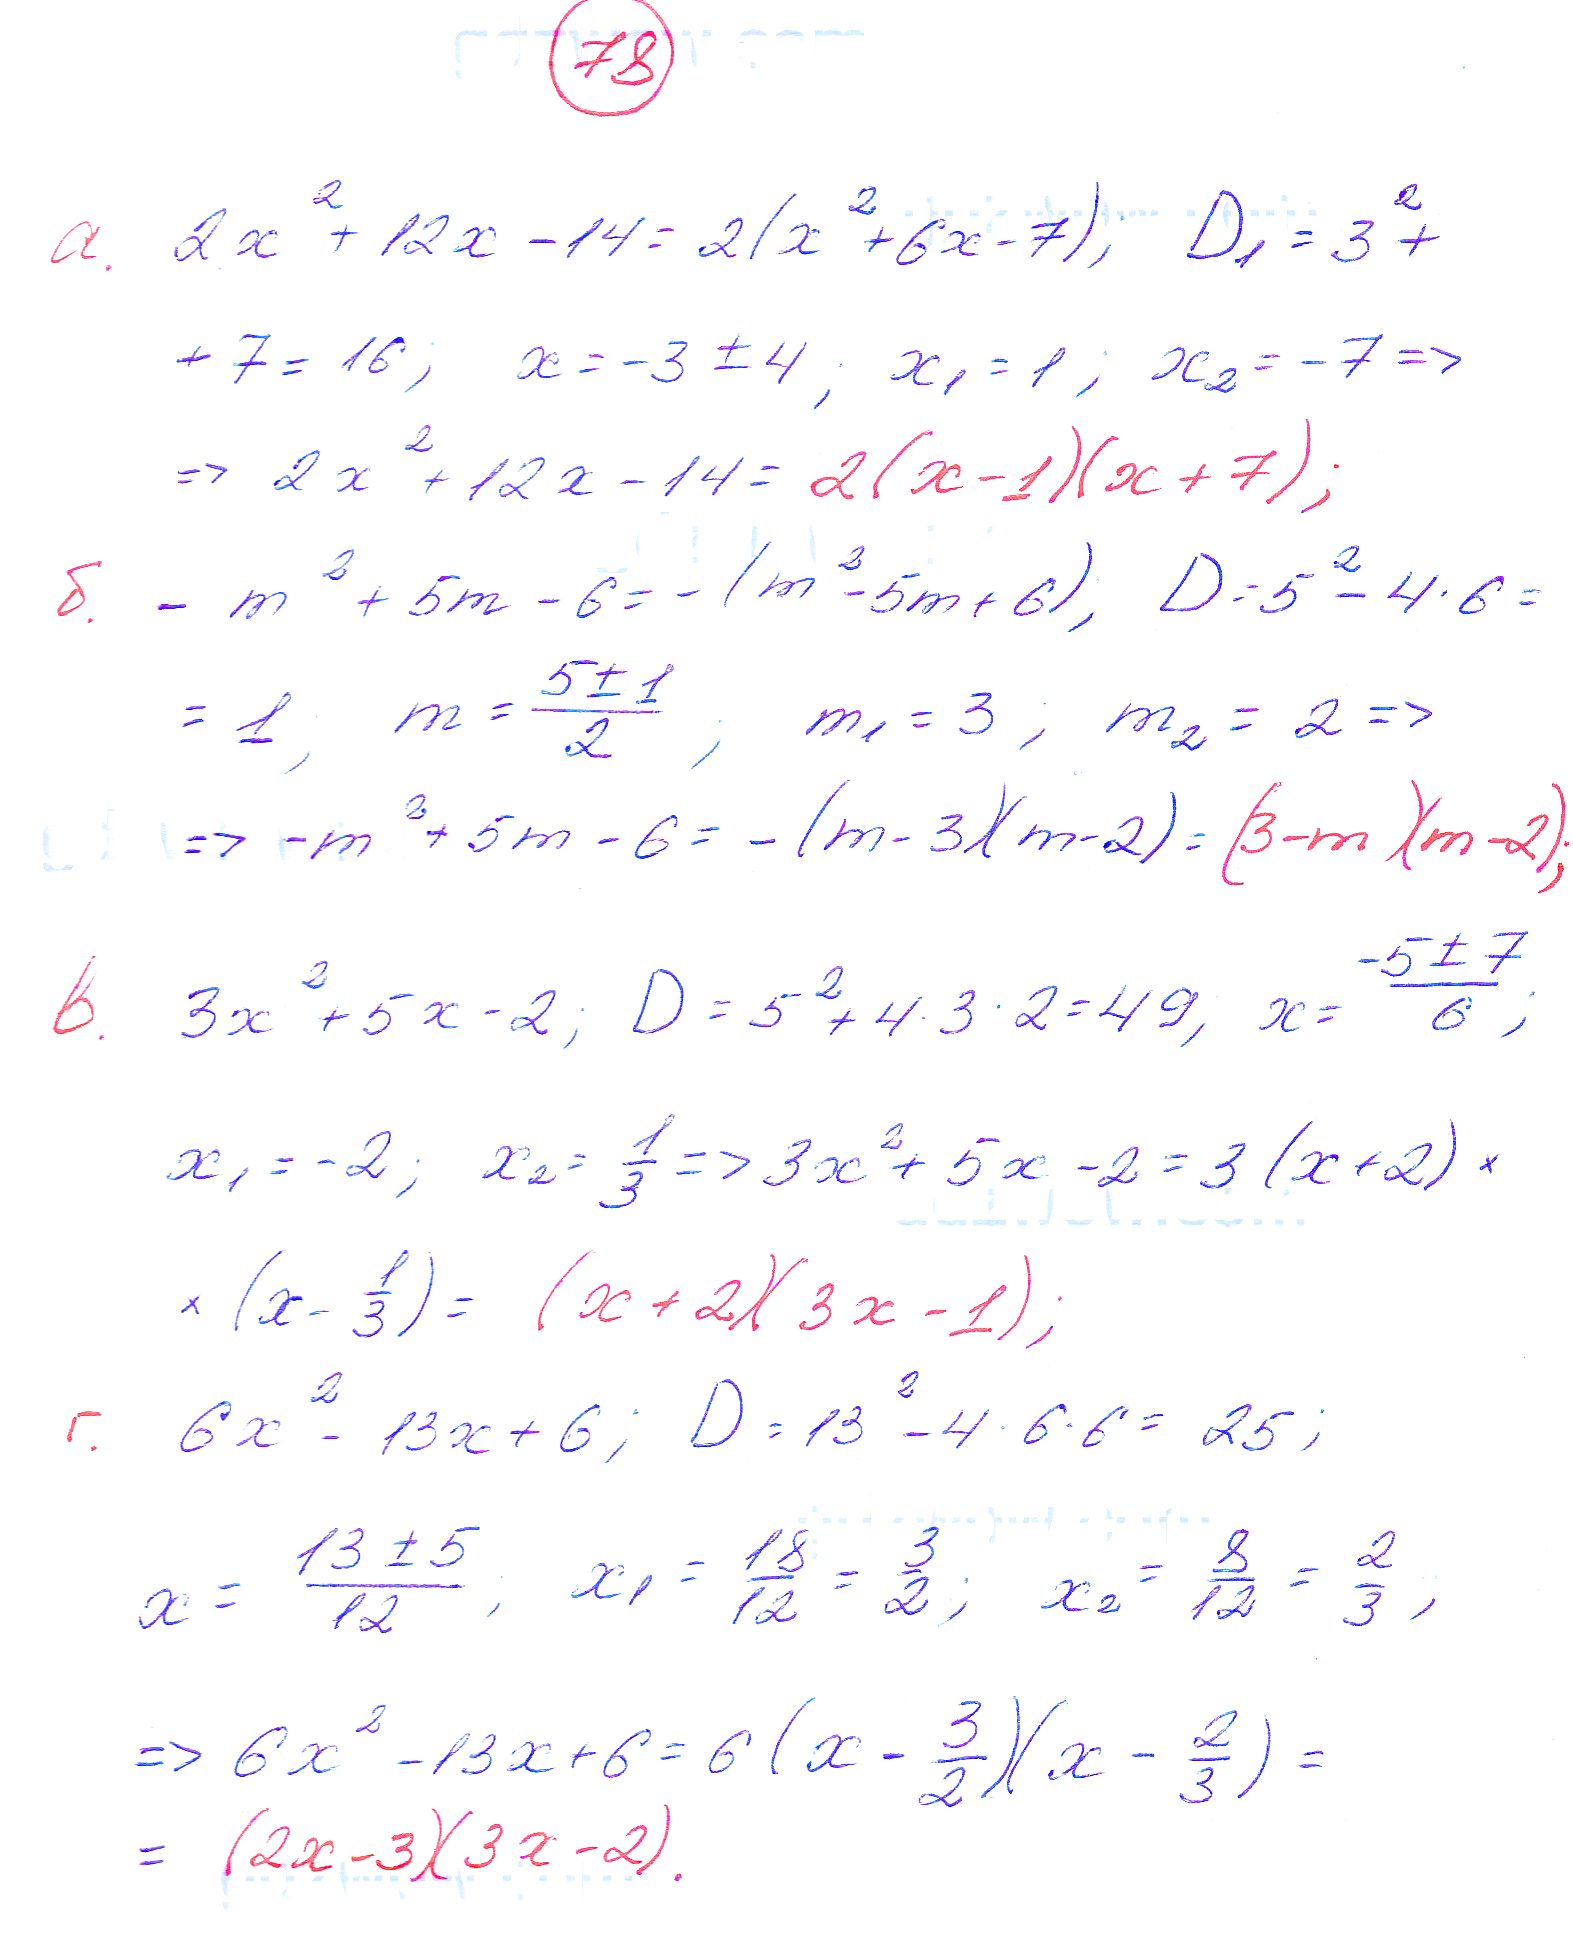 78
а. 2x² + 12x - 14 = 2(x² + 6x - 7); D₁ = 3² +
+ 7 = 16; x = -3 ± 4; x₁ = 1; x₂ = -7 =>
=> 2x² + 12x - 14 = 2(x - 1)(x + 7);
б. - m² + 5m - 6 = -(m² - 5m + 6); D = 5² - 4 · 6 =
= 1; m = (5 ± 1)/2; m₁ = 3; m₂ = 2 =>
=> -m² + 5m - 6 = -(m - 3)(m - 2) = (3 - m)(m - 2);
в. 3x² + 5x - 2; D = 5² + 4 · 3 · 2 = 49, x = (-5 ± 7)/6;
x₁ = -2; x₂ = 1/3 => 3x² + 5x - 2 = 3(x + 2) ×
× (x - 1/3) = (x + 2)(3x - 1);
г. 6x² - 13x + 6; D = 13² - 4 · 6 · 6 = 25;
x = (13 ± 5)/12; x₁ = 18/12 = 3/2; x₂ = 8/12 = 2/3;
=> 6x² - 13x + 6 = 6(x - 3/2)(x - 2/3) =
= (2x - 3)(3x - 2).